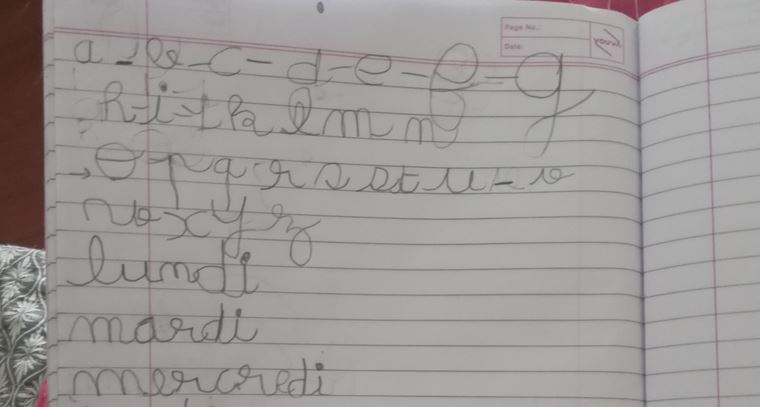 Page No.:
Date:
youva
a - b - c - d - e - f - g
h - i - j k l m n
o p q r s st u - v
w x y z
lundi
mardi
mercredi